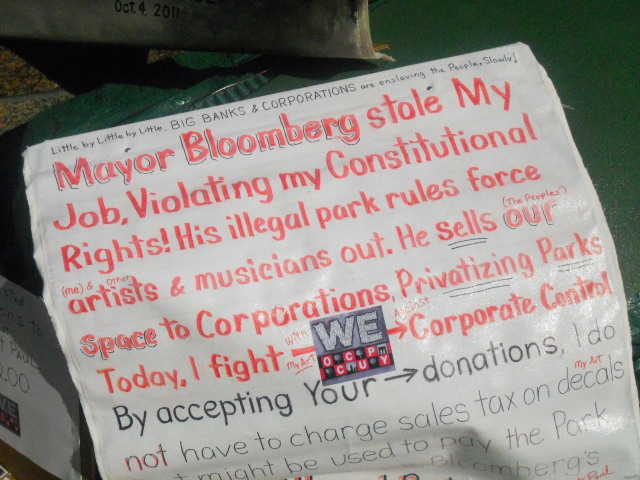 Oct. 4. 2011
Little by Little by Little, BIG BANKS & CORPORATIONS are enslaving the People, Slowly!
Mayor Bloomberg stole My
Job, Violating my Constitutional
Rights! His illegal park rules force
(me) & Other (The Peoples')
artists & musicians out. He sells our
space to Corporations, Privatizing Parks
Today, I fight with My Art WE OCCUPY Against Corporate Control
By accepting Your → donations, I do
not have to charge sales tax on My Art decals
might be used to pay the Park
Bloomberg's